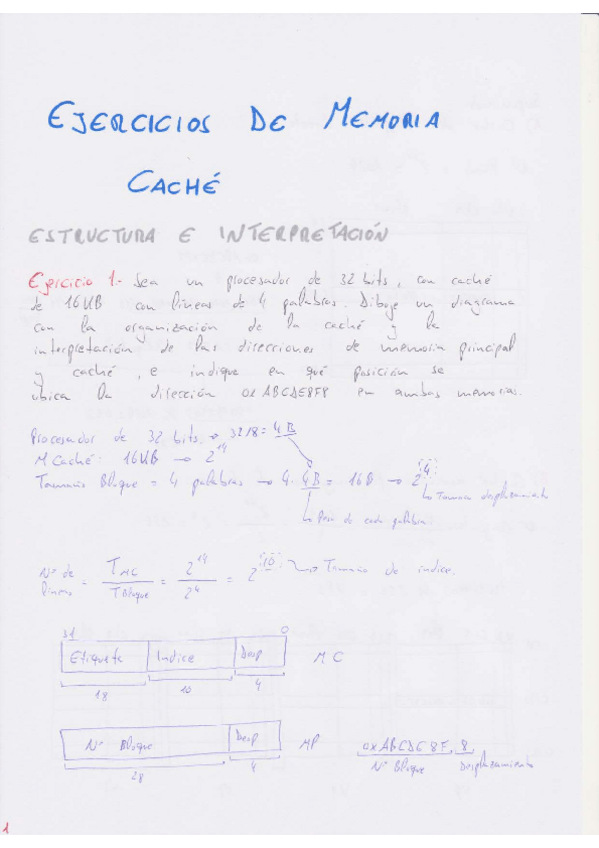 EJERCICIOS DE MEMORIA
CACHÉ
ESTRUCTURA E INTERPRETACIÓN
Ejercicio 1.- Sea un procesador de 32 bits, con caché
de 16KB con líneas de 4 palabras. Dibuje un diagrama
con la organización de la caché y la
interpretación de las direcciones de memoria principal
y caché, e indique en qué posición se
ubica la dirección 0xABCDE8F8 en ambas memorias.
Procesador de 32 bits. → 32/8 = 4B
M Caché: 16KB → 2^14
Tamaño Bloque = 4 palabras → 4 · 4B = 16B → 2^4
↳ Tamaño desplazamiento
↳ Peso de cada palabra.
Nº de líneas = TMC / TBloque = 2^14 / 2^4 = 2^10 → Tamaño de índice.
31 0
Etiqueta Indice Desp MC
18 10 4
Nº Bloque Desp MP 0xABCDE8F 8
28 4 Nº Bloque Desplazamiento
1